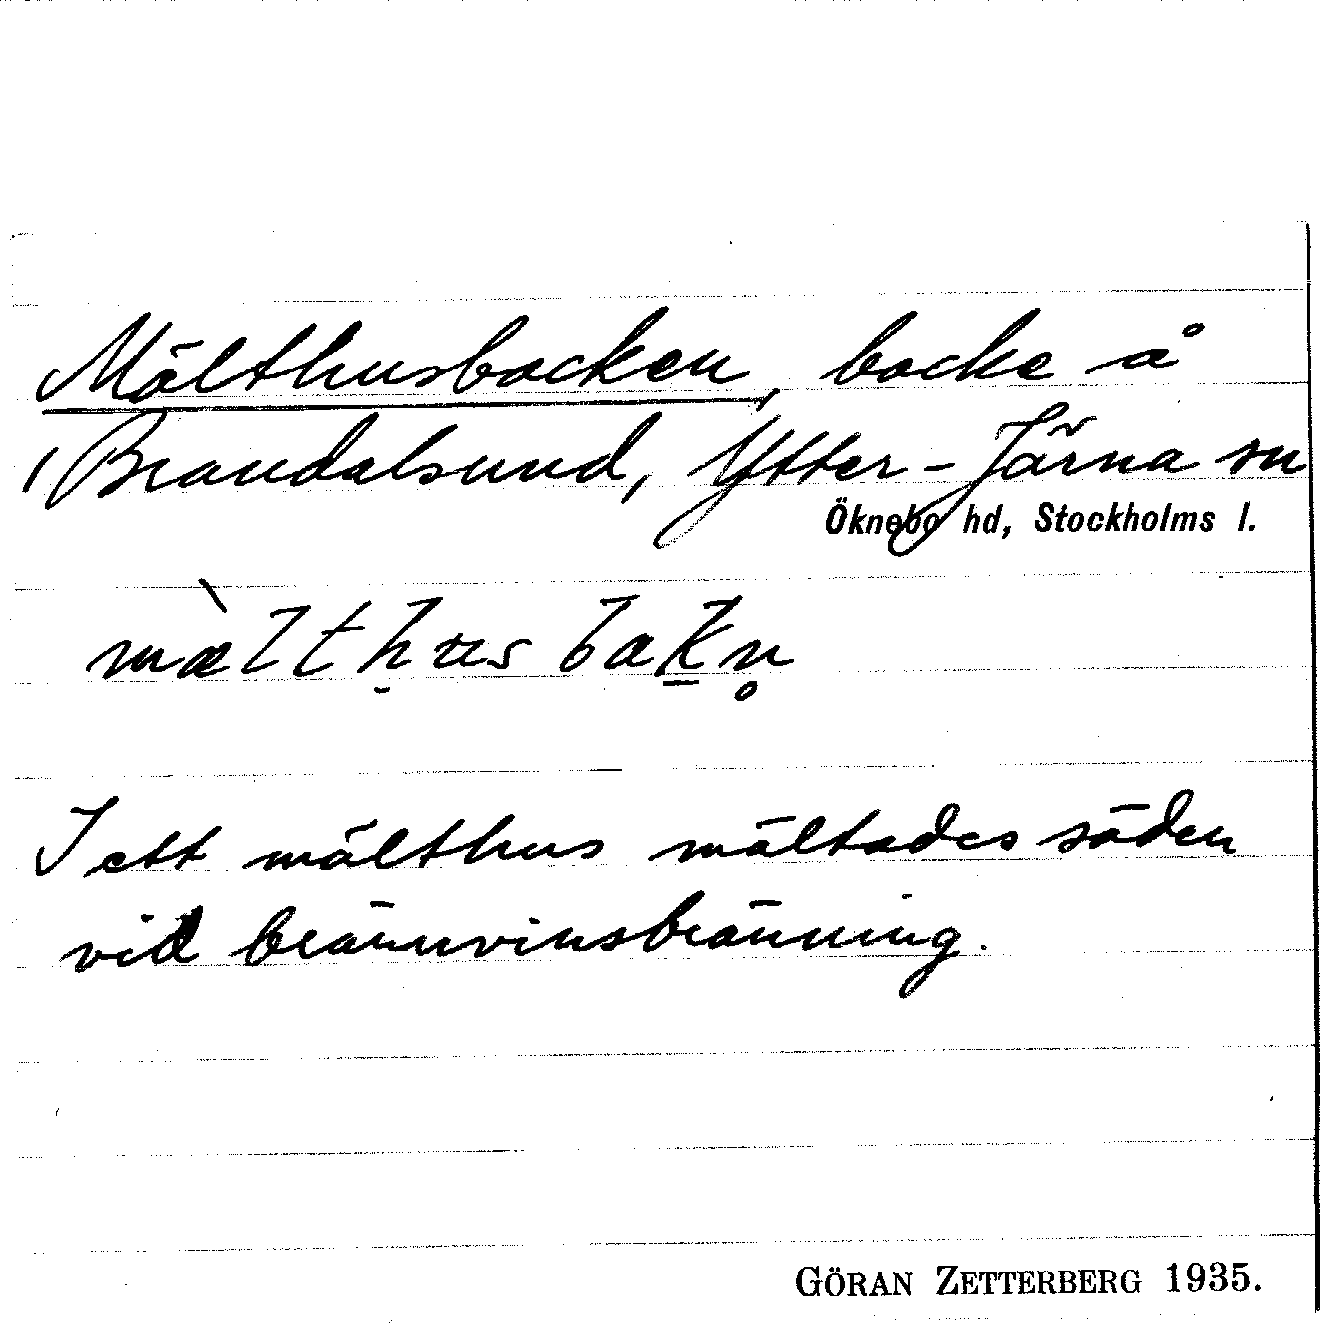 Mälthusbacken, backe å
1 Brandalsund, Ytter-Järna sn
Öknebo hd, Stockholms l.
mæ̀lthu̇s bakn̥
I ett mälthus mältades säden
vid brännvinsbränning.
GÖRAN ZETTERBERG 1935.